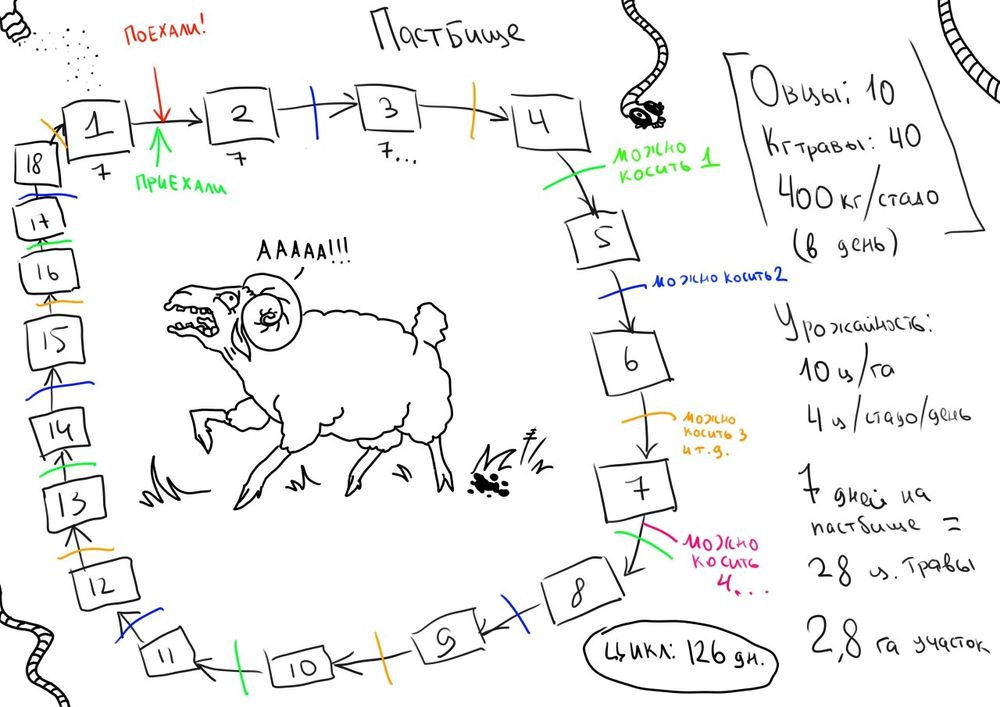 Пастбище
ПОЕХАЛИ!
ПРИЕХАЛИ
1
7
2
7
3
7...
4
МОЖНО
КОСИТЬ 1
5
МОЖНО КОСИТЬ 2
6
МОЖНО
КОСИТЬ 3
И Т.Д.
7
МОЖНО
КОСИТЬ
4...
8
9
10
11
12
13
14
15
16
17
18
ААААА!!!
ЦИКЛ: 126 дн.
Овцы: 10
Кг травы: 40
400 кг/стадо
(в день)
Урожайность:
10 ц/га
4 ц/стадо/день
7 дней на
пастбище =
28 ц. травы
2,8 га участок